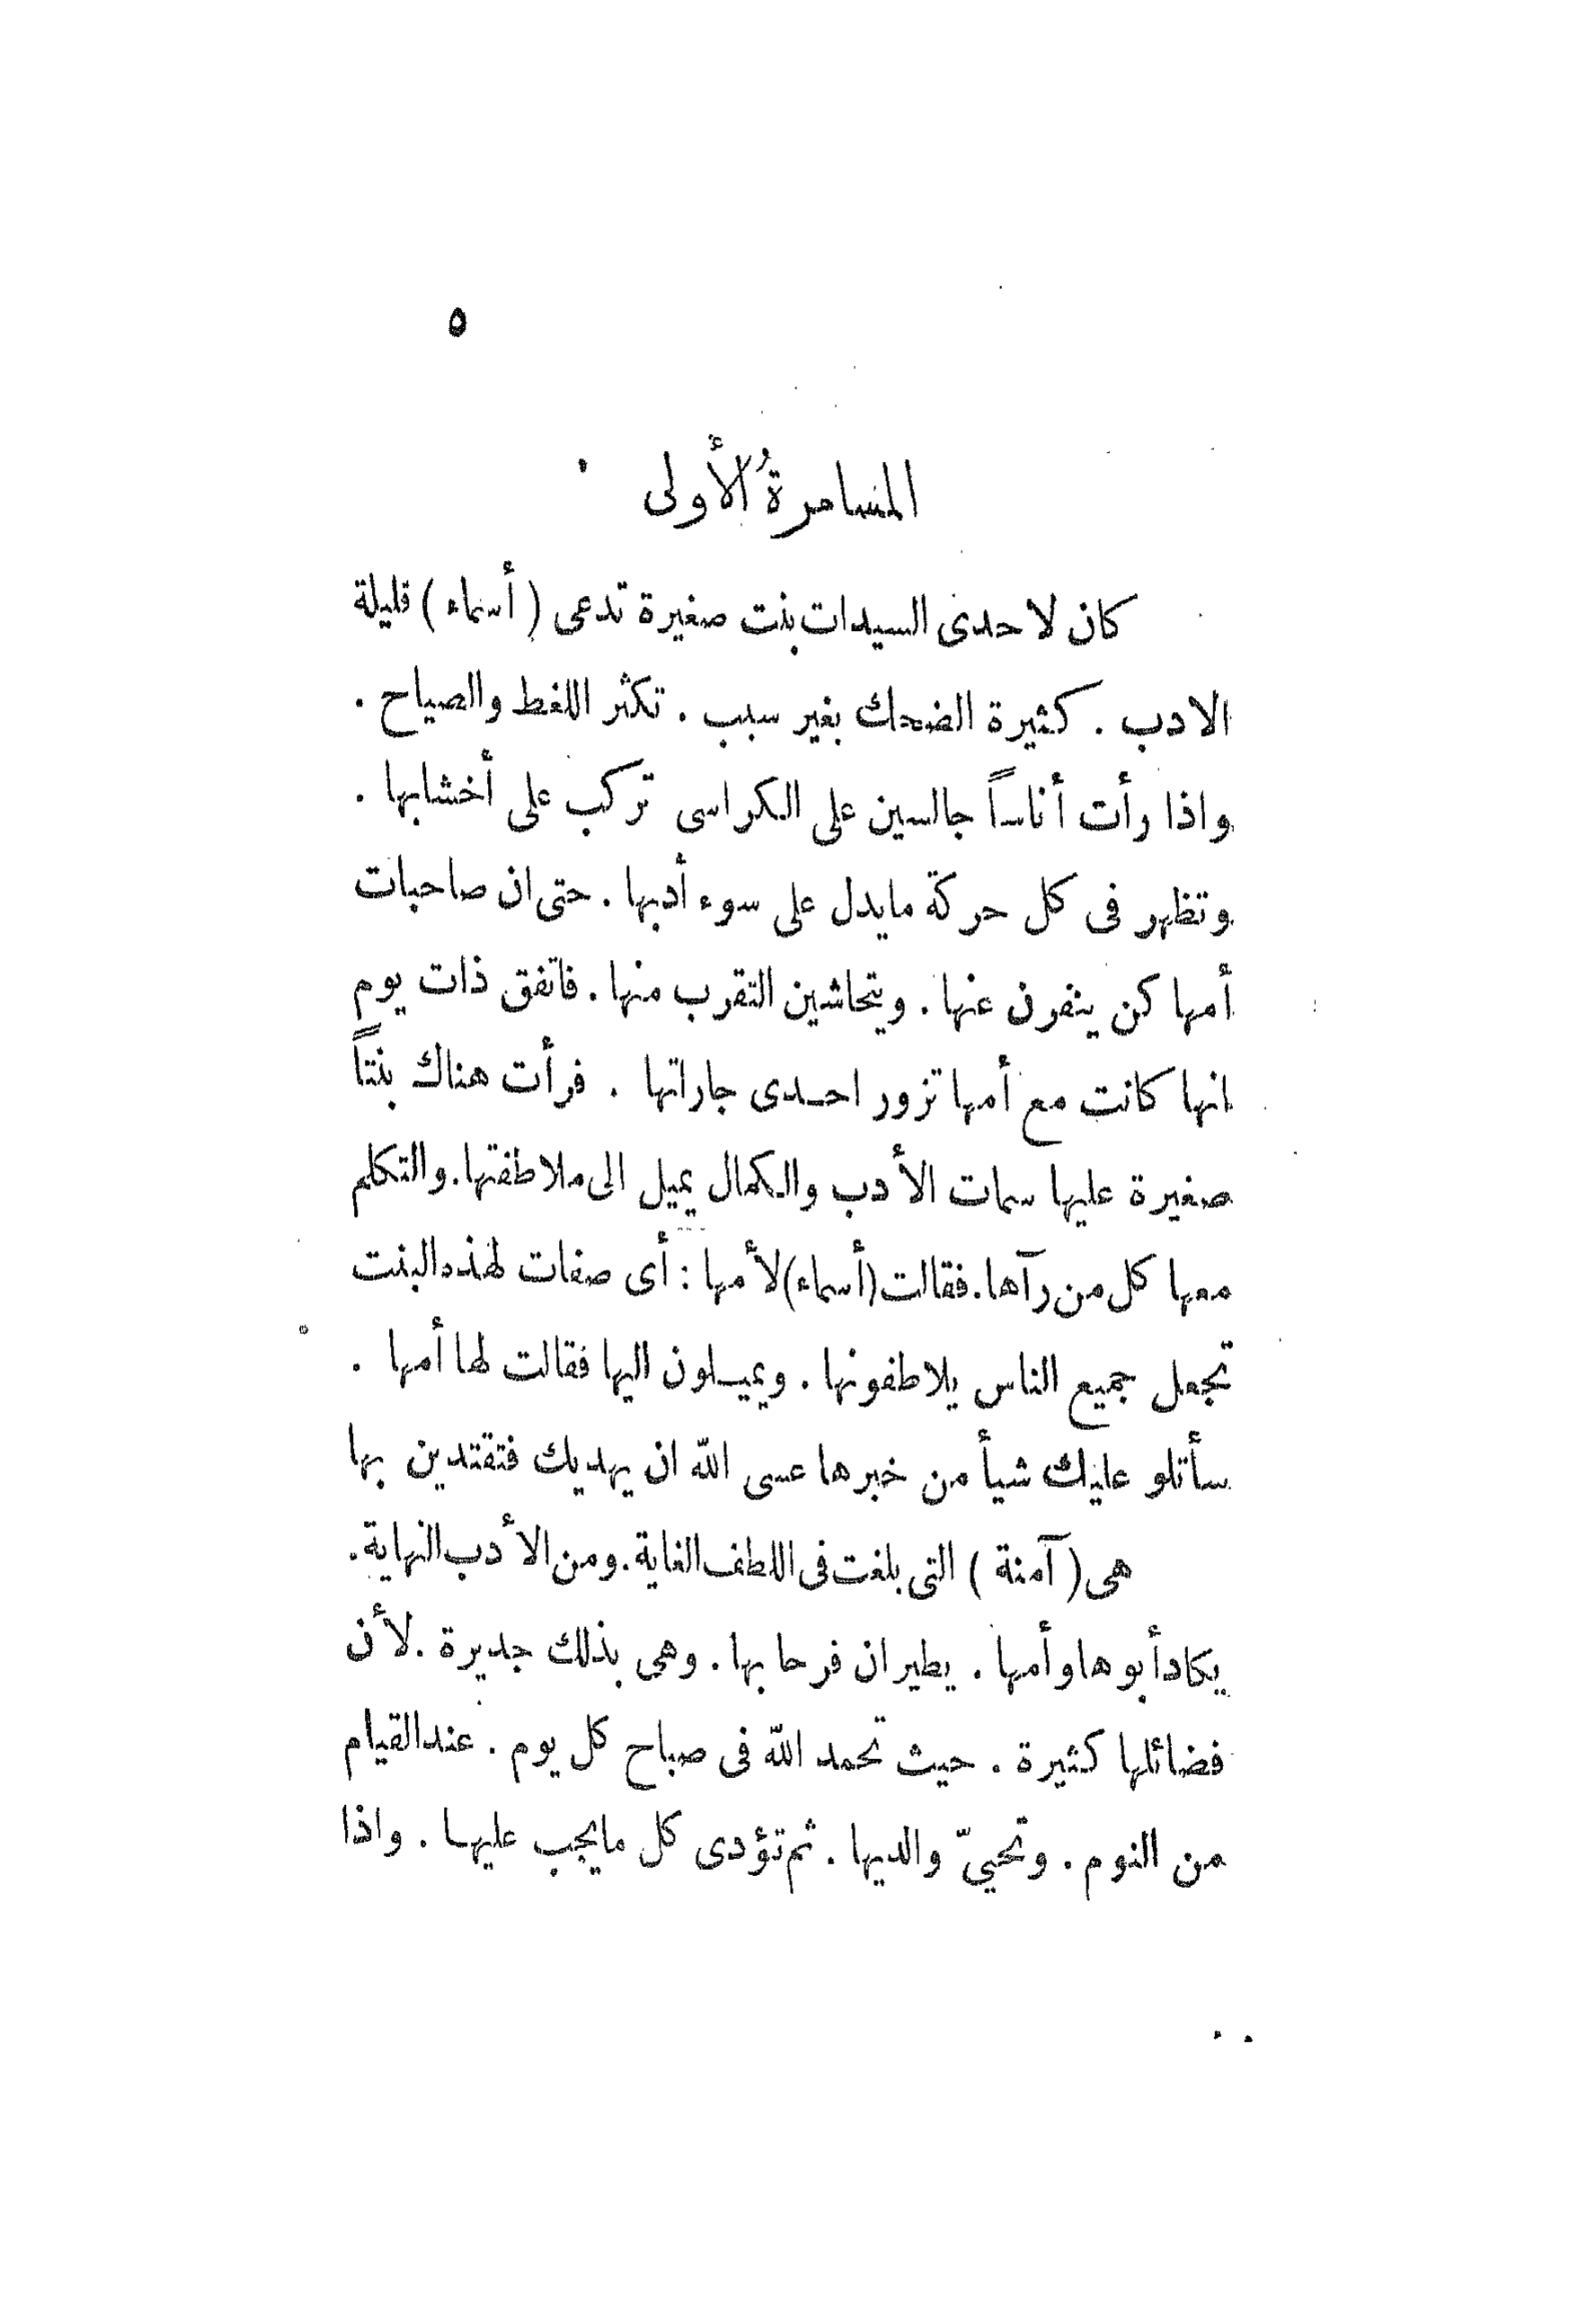 ٥
المسامرةُ الأولى
كان لاحدى السيدات بنت صغيرة تدعى ( أسماء ) قليلة
الادب . كثيرة الضحك بغير سبب . تكثر اللغط والصياح .
واذا رأت أناساً جالسين على الكراسى تركب على أخشابها .
وتظهر فى كل حركة مايدل على سوء أدبها . حتى ان صاحبات
أمها كن ينفرن عنها . ويتحاشين التقرب منها . فاتفق ذات يوم
انها كانت مع أمها تزور احدى جاراتها . فرأت هناك بنتاً
صغيرة عليها سمات الأدب والكمال يميل الى ملاطفتها . والتكلم
معها كل من رآها . فقالت (أسماء) لأمها : أى صفات لهذه البنت
تجعل جميع الناس يلاطفونها . ويميلون اليها فقالت لها أمها .
سأتلو عليك شيأ من خبرها عسى الله ان يهديك فتقتدين بها
هى ( آمنة ) التى بلغت فى اللطف الغاية . ومن الأدب النهاية .
يكاد أبوها وأمها . يطيران فرحا بها . وهى بذلك جديرة . لأن
فضائلها كثيرة . حيث تحمد الله فى صباح كل يوم . عند القيام
من النوم . وتحييّ والديها . ثم تؤدى كل مايجب عليها . واذا